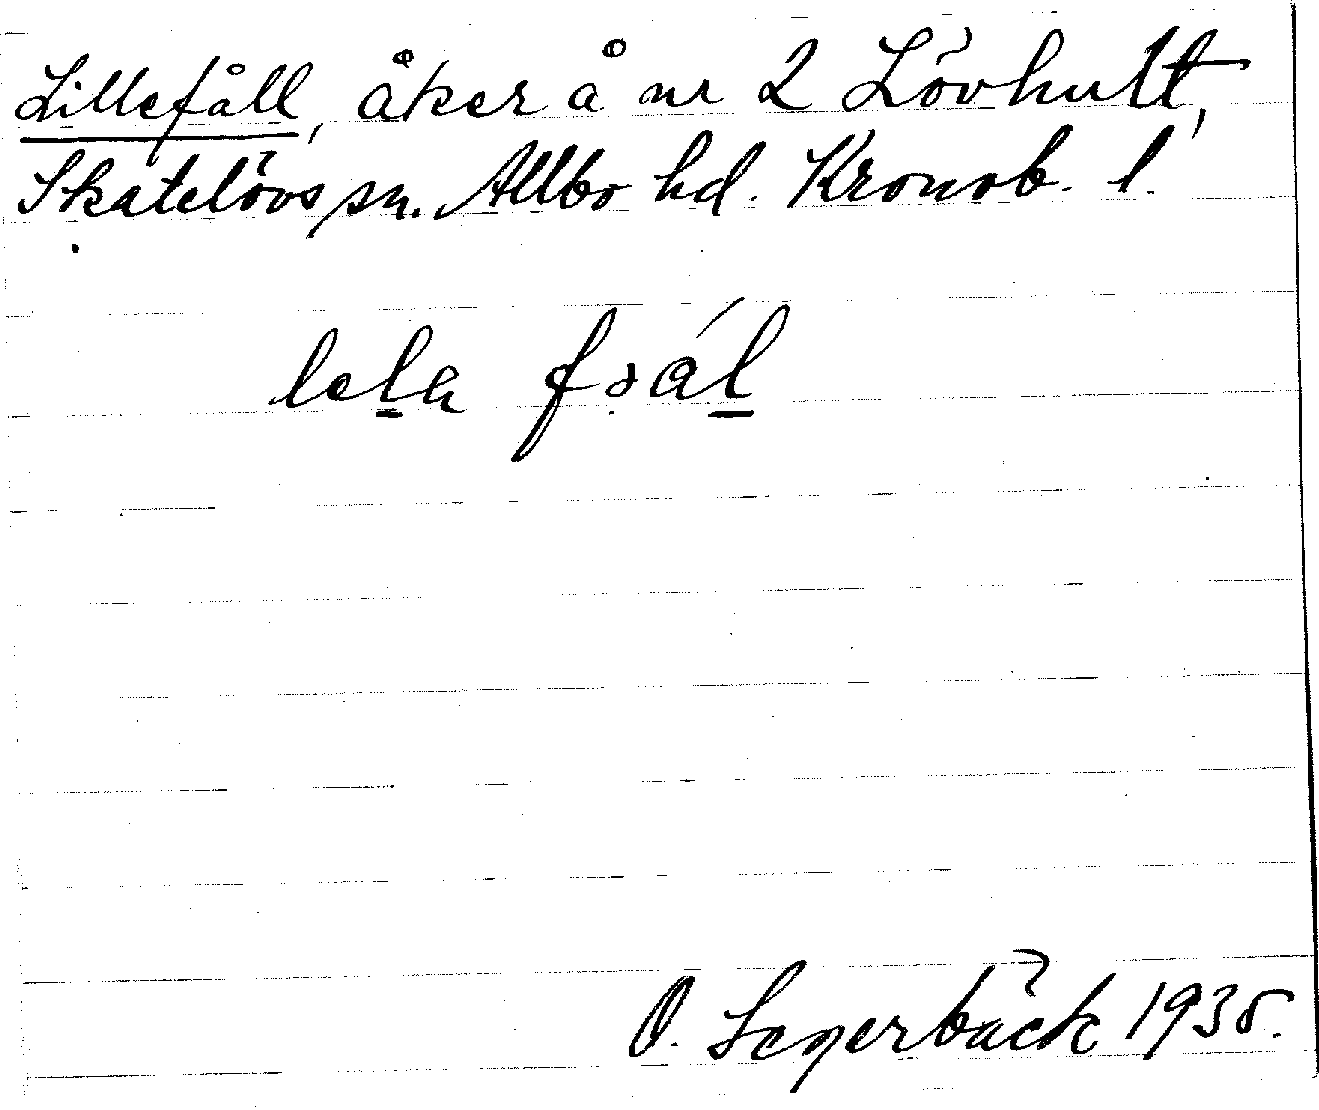 Lillefåll, åker å nr 2 Lövhult,
Skatelövs sn. Allbo hd. Kronob. l.
lela fɔál
O. Segerbäck 1935.